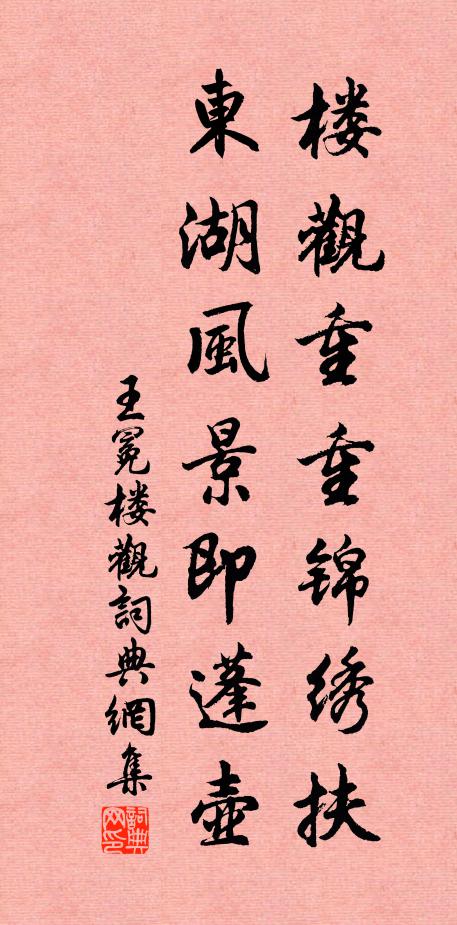 楼觀重重锦绣扶
東湖風景即蓬壺
王冕楼觀詞典網集
詞典网印